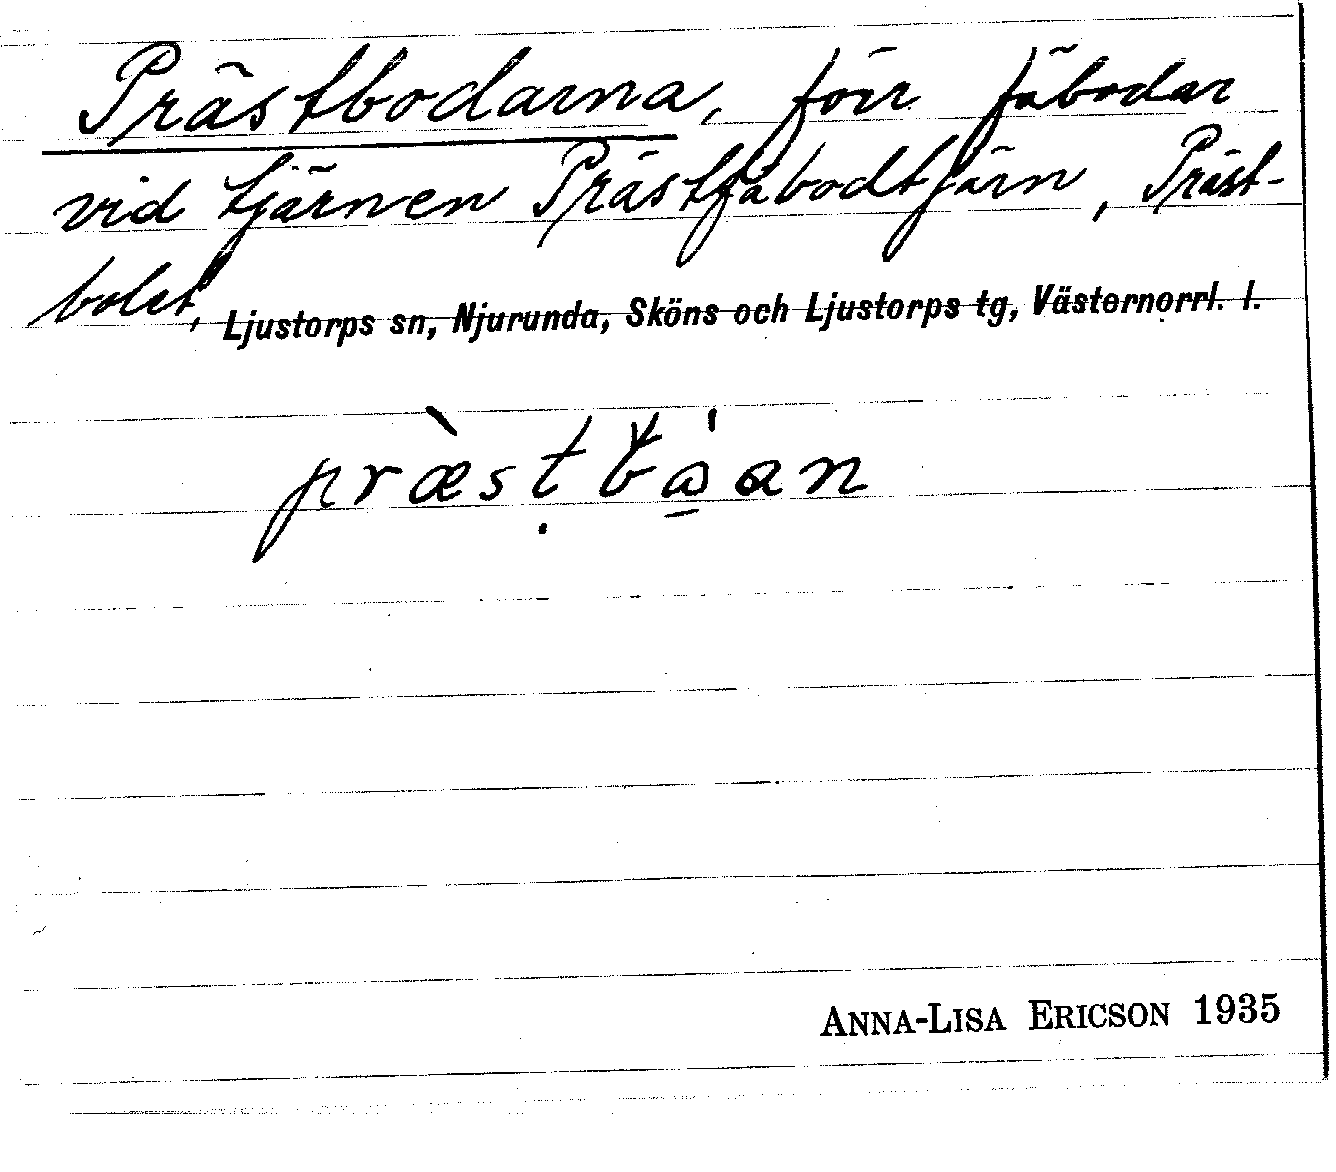 Prästbodarna, förr fäbodar
vid tjärnen Prästfäbodtjärn, Präst-
bolet, Ljustorps sn, Njurunda, Sköns och Ljustorps tg, Västernorrl. l.
ANNA-LISA ERICSON 1935